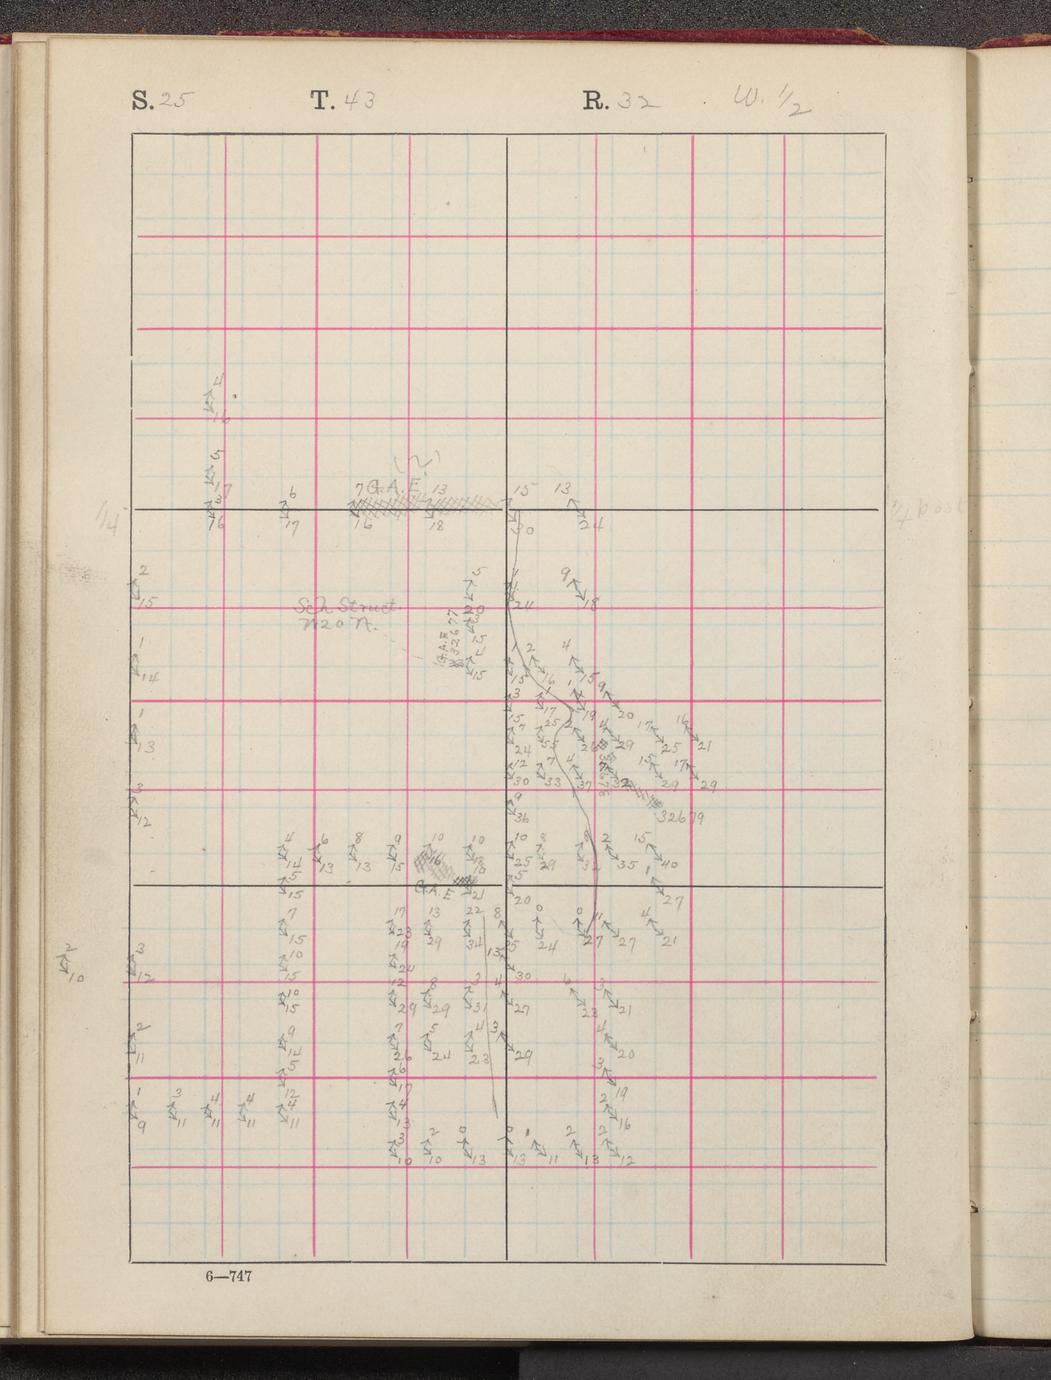 S. 25 T. 43 R. 32 W. 1/2
4
16
5
17
(2)
G.A.E.
3
16
6
17
7
16
13
18
15
30
13
24
1/4
1/4 post
2
15
5
20
1
24
9
18
Sch Struct
N20 N.
G.A.E
32677
15
4
15
1
14
1
15
2
16
4
15
3
15
1
17
19
9
20
1
13
7
24
25
55
2
4
29
17
25
16
21
12
30
7
33
4
37
15
29
17
29
3
12
9
36
32679
4
14
6
13
8
13
9
15
10
16
10
18
10
25
8
29
8
32
2
35
15
40
5
15
G.A.E
10
21
5
20
1
27
7
15
17
23
13
29
22
34
8
25
0
24
0
27
11
27
4
21
2
10
3
12
10
15
19
24
13
30
10
15
12
29
8
29
3
31
4
27
6
23
3
21
2
11
9
14
7
26
5
24
4
23
3
29
4
20
5
12
6
17
3
19
1
9
3
11
4
11
4
11
4
11
4
13
2
16
3
10
2
10
0
13
0
13
11
2
13
2
12
6—747